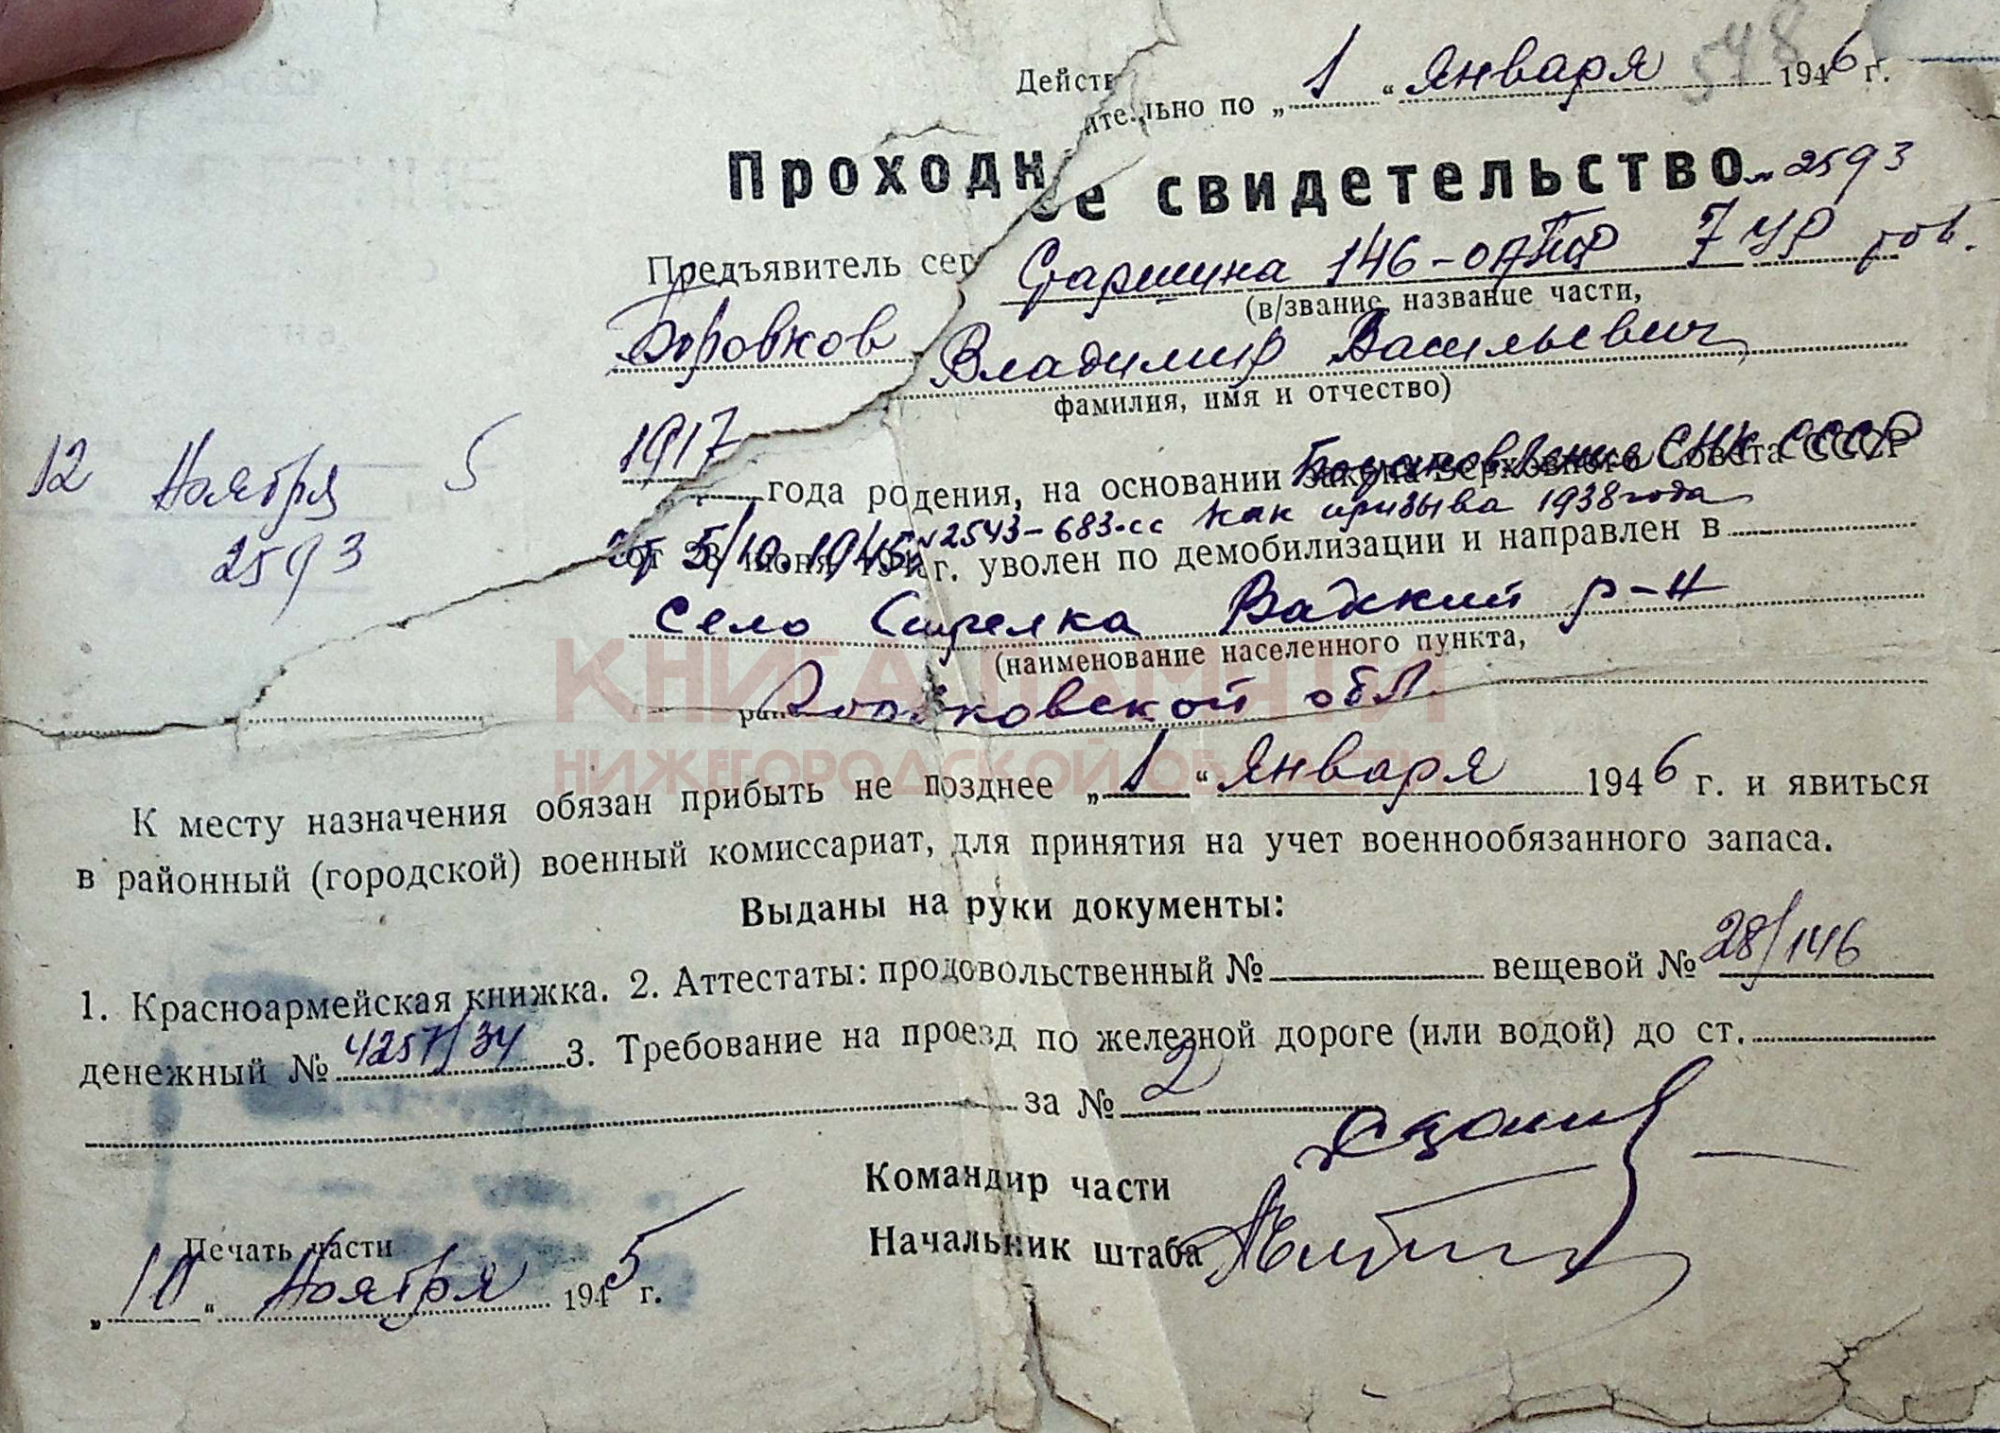 548
Действительно по „ 1 “ Января 1946 г.
Проходное свидетельство № 2593
Предъявитель сег Старшина 146-ОАПБ 7 УР тов.
(в/звание, название части,
Боровков Владимир Васильевич
фамилия, имя и отчество)
1917 года рождения, на основании закона Верховного Совета СССР
Постановления СНК СССР
от 5/10.1945 №2543-683-сс как призыва 1938 года
от 23 июня 1945 г. уволен по демобилизации и направлен в
село Стрелка Вадский р-н
(наименование населенного пункта,
рай Горьковской обл.
12 Ноября 5
2593
КНИГА ПАМЯТИ
НИЖЕГОРОДСКОЙ ОБЛАСТИ
К месту назначения обязан прибыть не позднее „ 1 “ Января 1946 г. и явиться
в районный (городской) военный комиссариат, для принятия на учет военнообязанного запаса.
Выданы на руки документы:
1. Красноармейская книжка. 2. Аттестаты: продовольственный № вещевой № 28/146
денежный № 4257/34 3. Требование на проезд по железной дороге (или водой) до ст.
за № 2
Командир части
Начальник штаба
Печать части
„ 10 “ Ноября 1945 г.